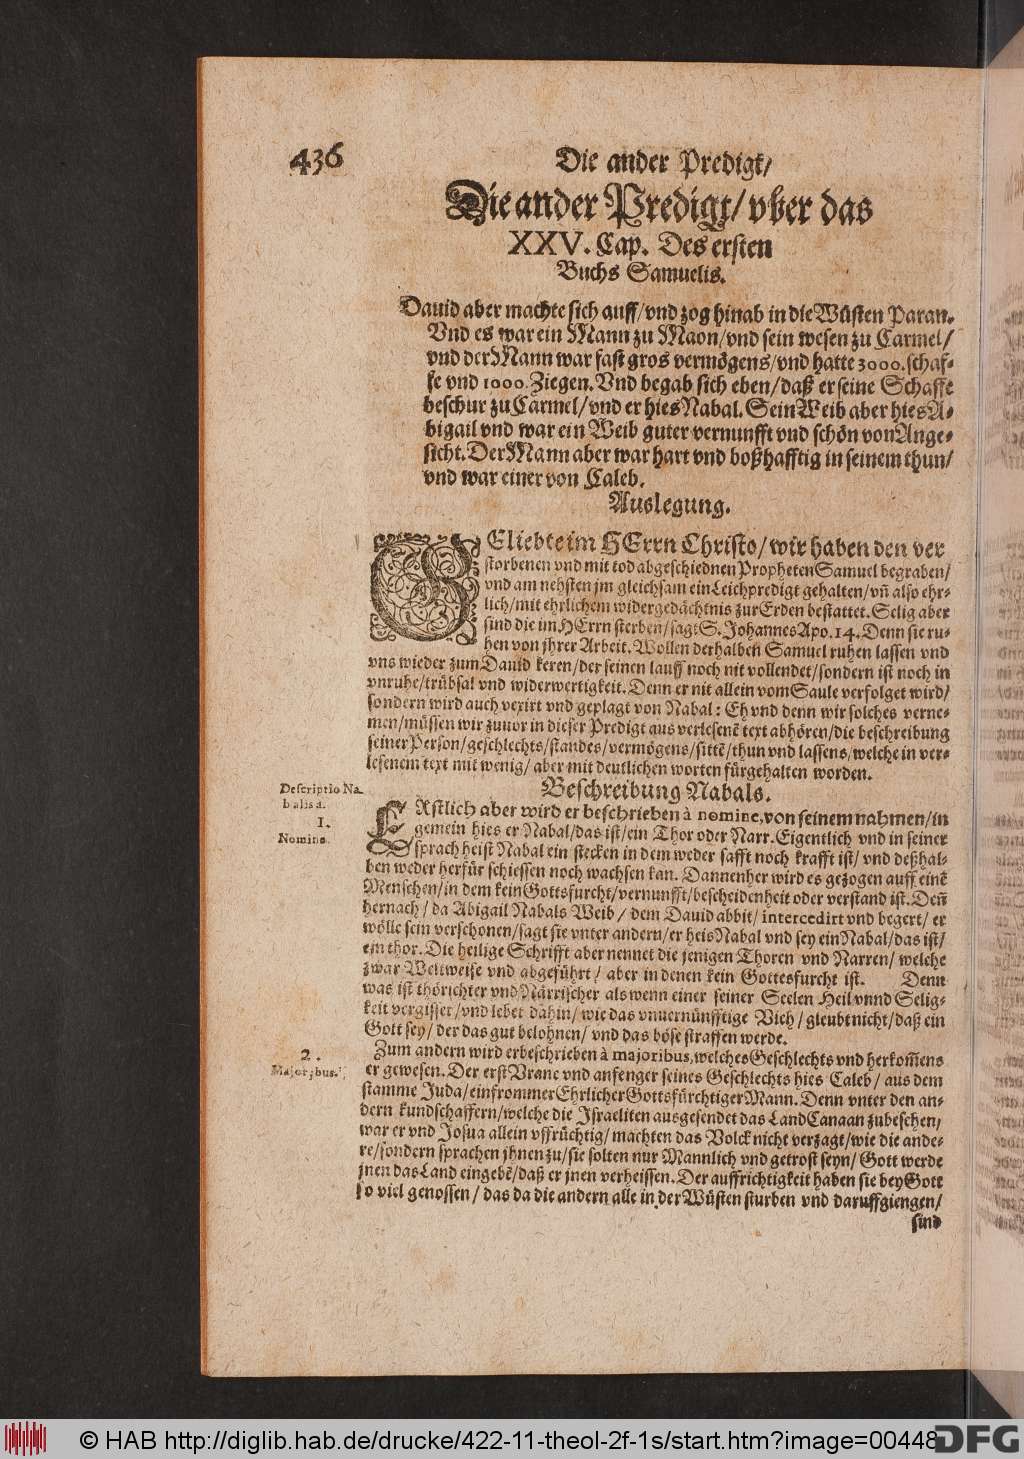 436
Die ander Predigt/
Die ander Predigt/ vber das
XXV. Cap. Des ersten
Buchs Samuelis.
Dauid aber machte sich auff/vnd zog hinab in die Wüsten Paran.
Vnd es war ein Mann zu Maon/vnd sein wesen zu Carmel/
vnd der Mann war fast gros vermögens/vnd hatte 3000. schaf-
fe vnd 1000. Ziegen. Vnd begab sich eben/daß er seine Schaffe
beschur zu Carmel/vnd er hies Nabal. Sein Weib aber hies A-
bigail vnd war ein Weib guter vernunfft vnd schön von Ange-
sicht. Der Mann aber war hart vnd boßhafftig in seinem thun/
vnd war einer von Caleb.
Auslegung.
GEliebte im HErrn Christo/wir haben den ver
storbenen vnd mit tod abgeschiednen Propheten Samuel begraben/
vnd am nehsten jm gleichsam ein Leichpredigt gehalten/vñ also ehr-
lich/mit ehrlichem widergedächtnis zur Erden bestattet. Selig aber
sind die im HErrn sterben/sagt S. Johannes Apo. 14. Denn sie ru-
hen von jhrer Arbeit. Wollen derhalben Samuel ruhen lassen vnd
vns wieder zum Dauid keren/der seinen lauff noch nit vollendet/sondern ist noch in
vnruhe/trübsal vnd widerwertigkeit. Denn er nit allein vom Saule verfolget wird/
sondern wird auch vexirt vnd geplagt von Nabal: Eh vnd denn wir solches verne-
men/müssen wir zuuor in dieser Predigt aus verlesenē text abhören/die beschreibung
seiner Person/geschlechts/standes/vermögens/sittē/thun vnd lassens/welche in ver-
lesenem text mit wenig/ aber mit deutlichen worten fürgehalten worden.
Beschreibung Nabals.
Descriptio Na-
balis à.
1.
Nomine.
ERstlich aber wird er beschrieben à nomine, von seinem nahmen/in
gemein hies er Nabal/das ist/ein Thor oder Narr. Eigentlich vnd in seiner
sprach heist Nabal ein stecken in dem weder safft noch krafft ist/ vnd deßhal-
ben weder herfür schiessen noch wachsen kan. Dannenher wird es gezogen auff einē
Menschen/in dem kein Gottsfurcht/vernunfft/bescheidenheit oder verstand ist. Deñ
hernach/ da Abigail Nabals Weib/ dem Dauid abbit/ intercedirt vnd begert/ er
wölle sein verschonen/sagt sie vnter andern/er heis Nabal vnd sey ein Nabal/das ist/
ein thor. Die heilige Schrifft aber nennet die jenigen Thoren vnd Narren/ welche
zwar Weltweise vnd abgeführt/ aber in denen kein Gottesfurcht ist. Denn
was ist thörichter vnd Närrischer als wenn einer seiner Seelen Heil vnnd Selig-
keit vergisset/vnd lebet dahin/ wie das vnuernünfftige Vieh/ gleubt nicht/daß ein
Gott sey/ der das gut belohnen/ vnd das böse straffen werde.
2.
Majoribus.
Zum andern wird er beschrieben à majoribus, welches Geschlechts vnd herkom̃ens
er gewesen. Der erst Vrane vnd anfenger seines Geschlechts hies Caleb/ aus dem
stamme Juda/ein frommer Ehrlicher Gottsfürchtiger Mann. Denn vnter den an-
dern kundschaffern/welche die Israeliten ausgesendet das Land Canaan zubesehen/
war er vnd Josua allein vffrüchtig/ machten das Volck nicht verzagt/wie die ande-
re/sondern sprachen jhnen zu/sie solten nur Mannlich vnd getrost seyn/ Gott werde
jnen das Land eingebē/daß er jnen verheissen. Der auffrichtigkeit haben sie bey Gott
so viel genossen/ das da die andern alle in der Wüsten sturben vnd daruffgiengen/
sind
© HAB http://diglib.hab.de/drucke/422-11-theol-2f-1s/start.htm?image=00448
DFG